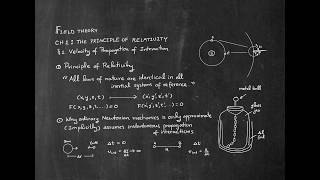 FIELD THEORY
CH 1: THE PRINCIPLE OF RELATIVITY
§1 Velocity of Propagation of Interaction
① Principle of Relativity
"All laws of nature are identical in all
inertial systems of reference."
(x,y,z,t) → (x',y',z',t')
F(x,y,z,t,...)=0 F(x',y',z',t',...)=0
① Why ordinary Newtonian mechanics is only approximate
(Implicitly) assumes instantaneous propagation
of interactions
Δt = 0
Δt = 0
metal ball
glass
Al foil